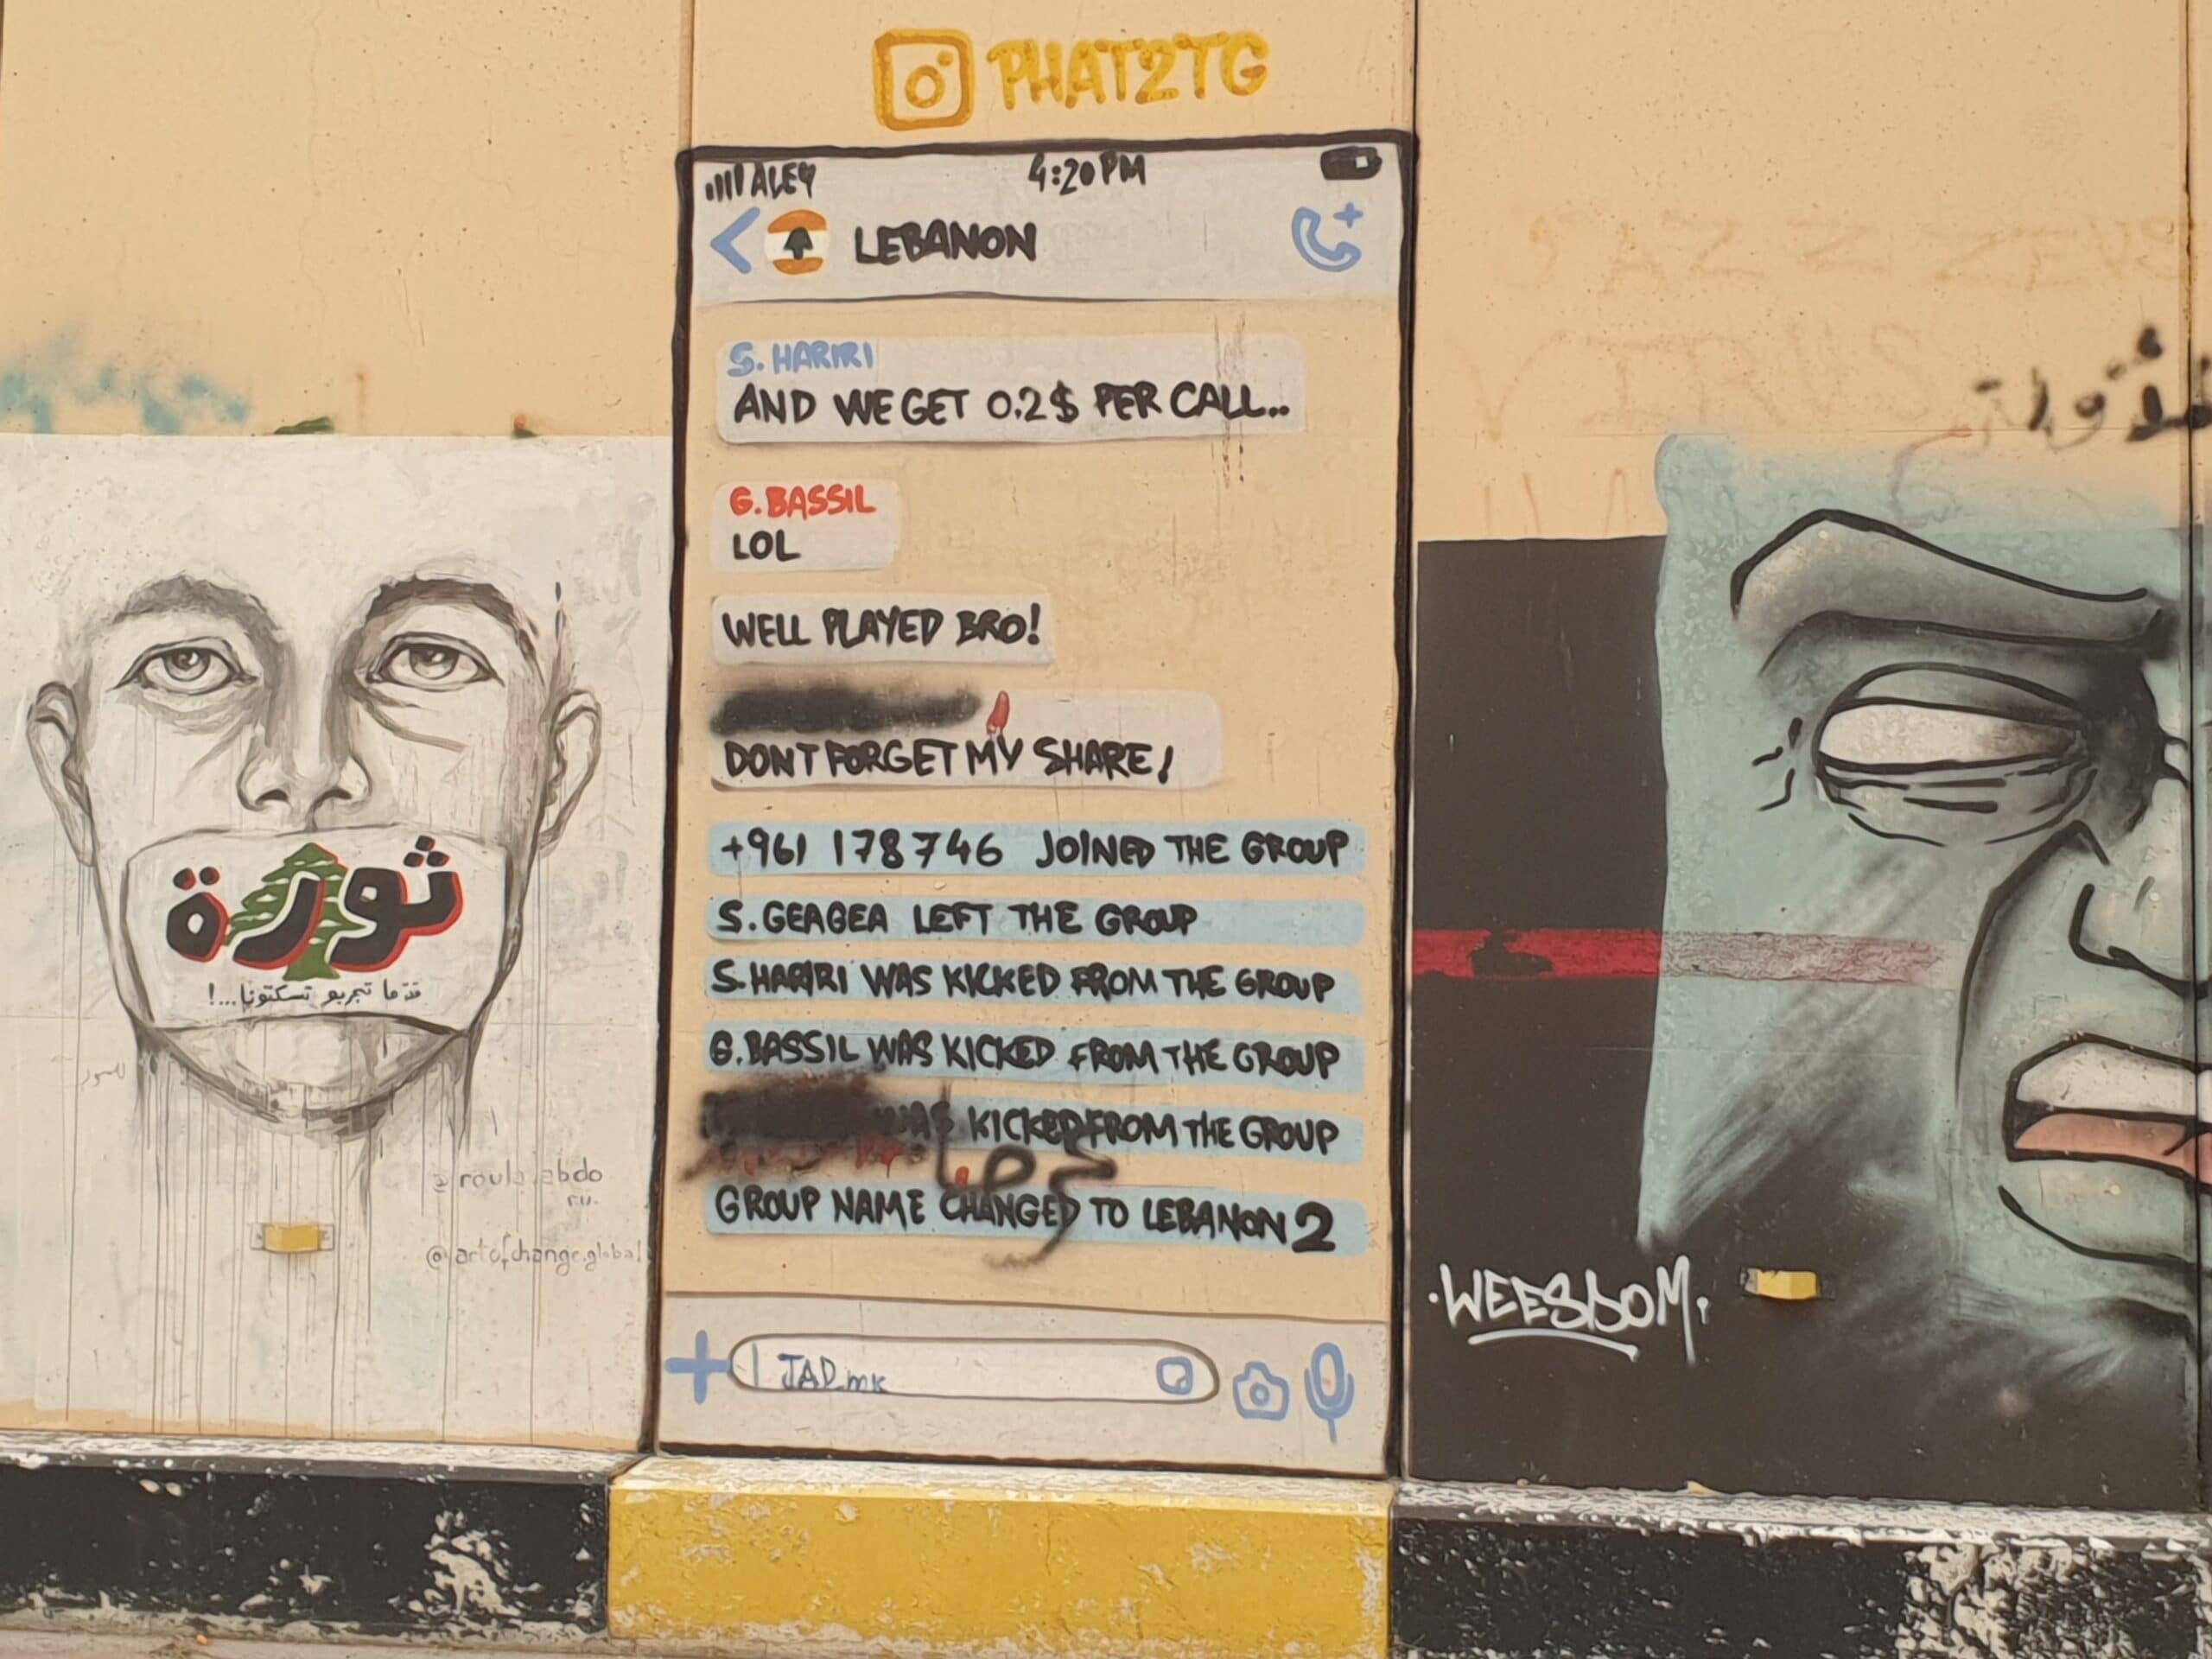 PHAT2TG
ALEY 4:20 PM
LEBANON
S. HARIRI
AND WE GET 0.2$ PER CALL..
G. BASSIL
LOL
WELL PLAYED BRO!
DONT FORGET MY SHARE!
+961 178746 JOINED THE GROUP
S. GEAGEA LEFT THE GROUP
S. HARIRI WAS KICKED FROM THE GROUP
G. BASSIL WAS KICKED FROM THE GROUP
WAS KICKED FROM THE GROUP
GROUP NAME CHANGED TO LEBANON 2
JAD_mk
ثورة
قدّما تجربو تسكتونا...!
@roula abdo
@artofchange.global
.WEESDOM.